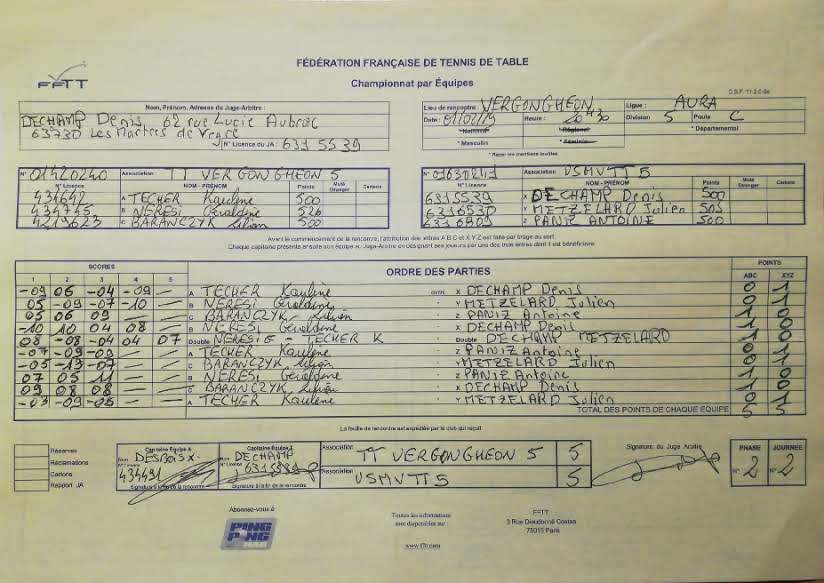 FÉDÉRATION FRANÇAISE DE TENNIS DE TABLE
FFTT
Championnat par Équipes
Nom, Prénom, Adresse du Juge-Arbitre :
DECHAMP Denis, 62 rue Lucie Aubrac
63730 Les Martres de Veyre
N° Licence du JA : 6315539
Lieu de rencontre : VERGONGHEON Ligue : AURA
Date : 01/02/19 Heure : 20H30 Division 5 Poule C
* Nommer * Régional * Départemental
* Masculin * Féminin
* Rayer les mentions inutiles
N° 01420240 Association TT VERGONGHEON 5
N° Licence NOM - PRÉNOM Points Muté Etranger Cartons
434642 A TECHER Kauline 500
434745 B NERESI Géraldine 526
4219623 C BARANCZYK Lilian 500
N° 01630241 Association USMVTT 5
N° Licence NOM - PRÉNOM Points Muté Etranger Cartons
6315539 X DECHAMP Denis 500
6316530 Y METZELARD Julien 505
6316809 Z PANIZ ANTOINE 500
Avant le commencement de la rencontre, l'attribution des lettres A B C et X Y Z est faite par tirage au sort.
Chaque capitaine présente ensuite son équipe au Juge-Arbitre en désignant ses joueurs par une des trois lettres dont il est bénéficiaire.
SCORES ORDRE DES PARTIES POINTS
1 2 3 4 5 ABC XYZ
-09 06 -04 -09 — A TECHER Kauline contre X DECHAMP Denis 0 1
05 -09 -07 -10 — B NERESI Géraldine " Y METZELARD Julien 0 1
05 06 09 — — C BARANCZYK Lilian " Z PANIZ Antoine 1 0
-10 10 04 08 — B NERESI Géraldine " X DECHAMP Denis 1 0
08 -08 -04 04 07 Double NERESI G - TECHER K " Double DECHAMP METZELARD 1 0
-07 -09 -09 — — A TECHER Kauline " Z PANIZ Antoine 0 1
-05 -13 -07 — — C BARANCZYK Lilian " Y METZELARD Julien 0 1
07 05 11 — — B NERESI Géraldine " Z PANIZ Antoine 1 0
09 08 08 — — C BARANCZYK Lilian " X DECHAMP Denis 1 0
-03 -09 -06 — — A TECHER Kauline " Y METZELARD Julien 0 1
TOTAL DES POINTS DE CHAQUE EQUIPE 5 5
La feuille de rencontre est expédiée par le club qui reçoit
Réserves
Réclamations
Cartons
Rapport JA
Capitaine Equipe A
Nom DESBOIS X.
N° Licence 434491
Signature à la fin de la rencontre
Capitaine Equipe X
Nom DECHAMP
N° Licence 6315539
Signature à la fin de la rencontre
Association TT VERGONGHEON 5 5
Association USMVTT 5 5
Signature du Juge Arbitre
PHASE JOURNEE
N° 2 N° 2
Abonnez-vous à
PING PONG MAG
Toutes les informations
sont disponibles sur :
www.fftt.com
FFTT
3 Rue Dieudonné Costes
75013 Paris